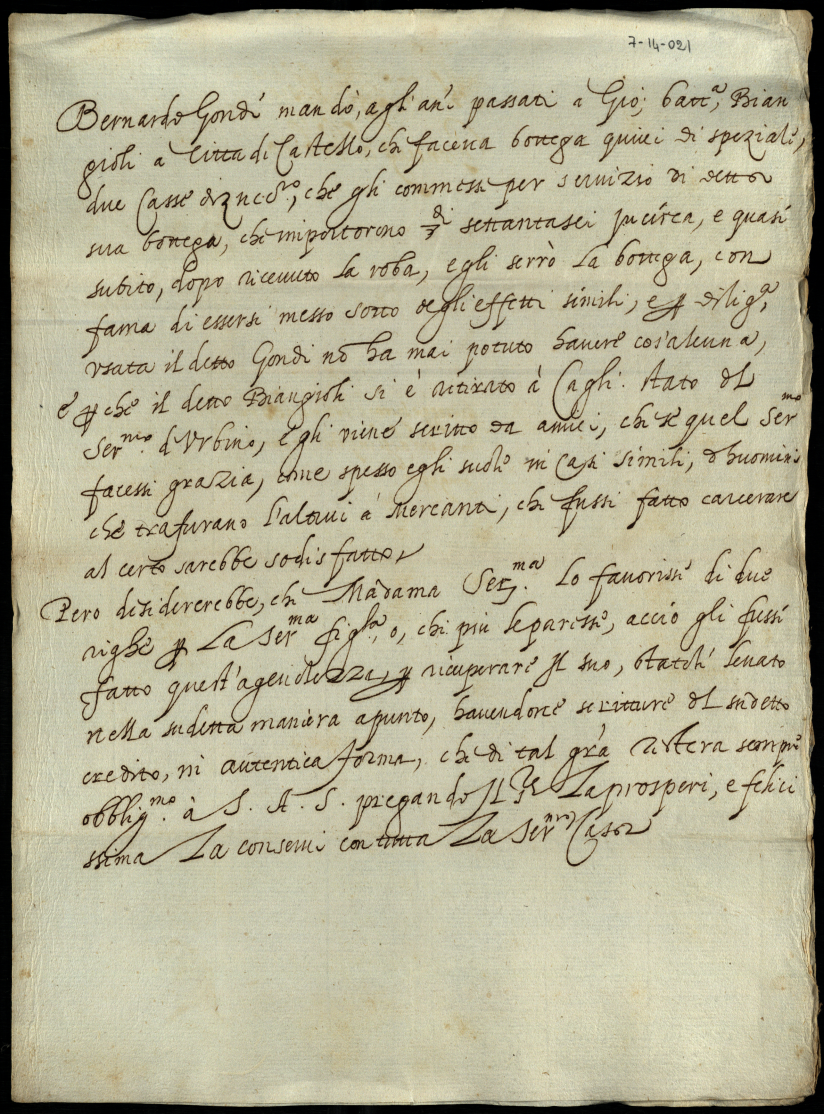 7-14-021
Bernardo Gondi mandò, agl'ani passati a Gio; batt.a, Bian
gioli a Citta di Castello, che faceva bottega quivi di speziale,
due Casse di che gli commesse per servizio di detta
sua bottega, che importorono settantasei in circa, e quasi
subito, dopo ricevuto la roba, egli serrò la bottega, con
fama di essersi messo sotto degli effetti simili, e ꝑ dilig.a,
usata il detto Gondi nō ha mai potuto havere cos'alcuna,
e ꝑche il detto Biangioli si è ritirato à Cagli. stato del
Ser.mo d'Urbino, egli viene scritto da amici, che se quel Ser.mo
facessi grazia, come spesso egli suole in Casi simili, d'huomini
che trafurano l'altrui à Mercanti, che fussi fatto carcerare
al certo sarebbe sodisfatto,
Pero desidererebbe, che Madama Ser.ma Lo favorisse di due
righe ꝑ La Ser.ma figl.a, o, chi più le paresse, acciò gli fussi
fatto quest'agevolezza, ꝑ ricuperare Il suo, levato
nella sudetta maniera apunto, havendone scritture del sudetto
credito, in autentica forma, che di tal gr̃a restera sempre
obblig.mo à S. A. S. pregando La prosperi, e felici
ssima La conservi con tutta La Ser.ma Casa